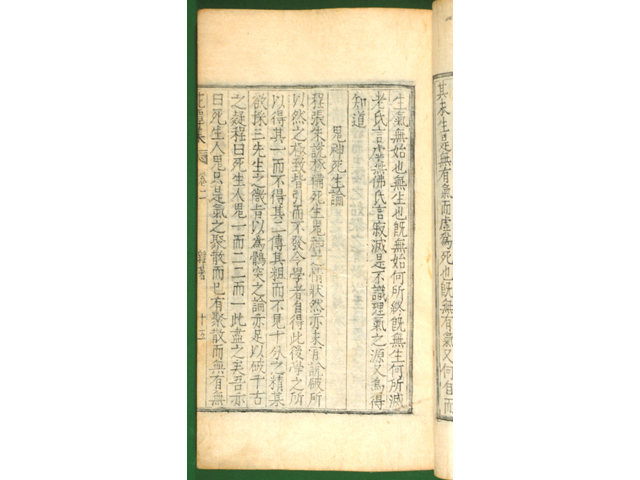 其未生是無有氣而虛爲死也旣無有氣又何自而
生氣無始也無生也旣無始何所終旣無生何所滅
老氏言虛無佛氏言寂滅是不識理氣之源又烏得
知道
鬼神死生論
程張朱說極備死生鬼神之情狀然亦未肯說破所
以然之極致皆引而不發令學者自得此後學之所
以得其一而不得其二傳其粗而不見十分之精某
欲採三先生之微旨以爲鶻突之論亦足以破千古
之疑程曰死生人鬼一而二二而一此盡之矣吾亦
曰死生人鬼只是氣之聚散而已有聚散而無有無
花潭集 卷二 雜著 十五